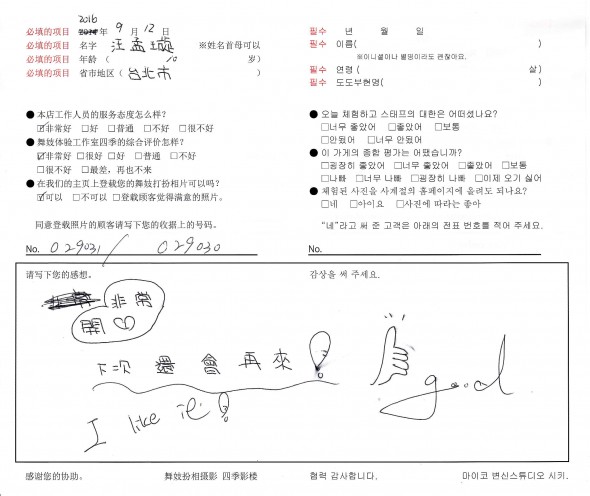 2016
必填的项目 2014年 9 月 12 日
必填的项目 名字 汪孟璇 ※姓名首母可以
必填的项目 年龄 ( 10 岁)
必填的项目 省市地区 ( 台北市 )
●本店工作人员的服务态度怎么样?
☑非常好 □好 □普通 □不好 □很不好
●舞妓体验工作室四季的综合评价怎样?
☑非常好 □很好 □好 □普通 □不好
□很不好 □最差，再也不来
●在我们的主页上登载您的舞妓打扮相片可以吗?
☑可以 □不可以 □登载顾客觉得满意的照片。
同意登载照片的顾客请写下您的收据上的号码。
No. 029031 / 029030
필수 년 월 일
필수 이름( )
※이니셜이나 별명이라도 괜찮아요.
필수 연령 ( 살)
필수 도도부현명( )
●오늘 체험하고 스태프의 대한은 어떠셨나요?
□너무 좋았어 □좋았어 □보통
□안됬어 □너무 안됬어
●이 가게의 종합 평가는 어땠습니까?
□굉장히 좋았어 □너무 좋았어 □좋았어 □보통
□나빠 □너무 나빠 □굉장히 나빠 □이제 오기 싫어
●체험된 사진을 사계절의 홈페이지에 올려도 되나요?
□네 □아이요 □사진에 따라는 좋아
“네”라고 써 준 고객은 아래의 전표 번호를 적어 주세요.
No.
请写下您的感想。
非常
開♡
下次還會再來!
I like it!
감상을 써 주세요.
good
感谢您的协助。 舞妓扮相摄影 四季影楼
협력 감사합니다. 마이코 변신스튜디오 시키.